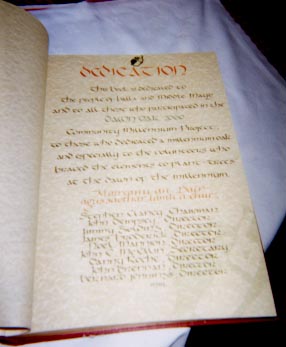 DEDICATION
This Book is dedicated to
the people of Bulla and Moore Maye
and to all those who participated in the
DAWN OAK 2000
Community Millennium Project,
to those who dedicated a millennium oak
and especially to the volunteers who
braved the elements to plant trees
at the dawn of the millennium.
Stephen Clancy Chairman
John Dempsey Director
Jimmy Director
James Frederick Director
Noel Mannion Director
John K. Secretary
Canny Keehe Director
John Brennan Director
Bernard Jennings Director